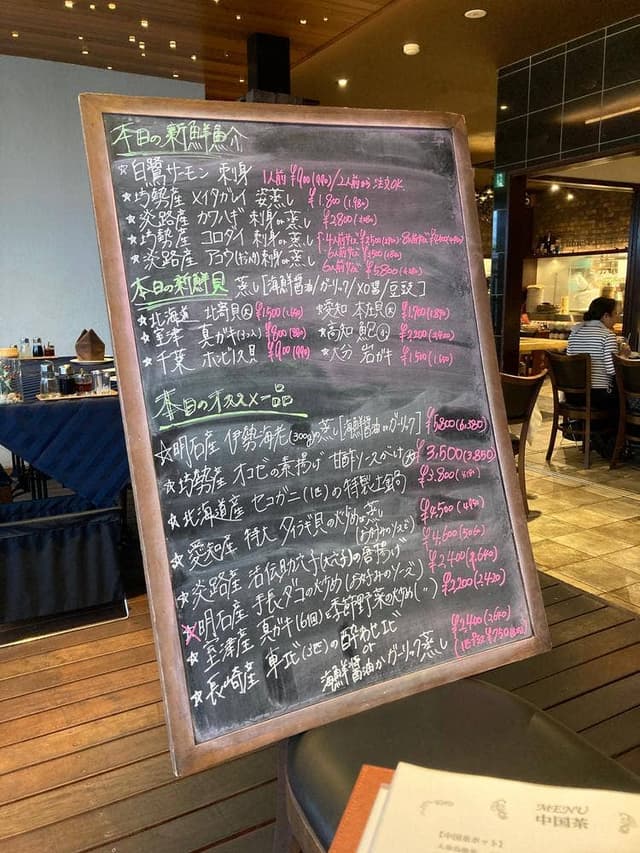 本日の新鮮魚介
☆白鷺サーモン 刺身 1人前 ¥900(990)/2人前から注文OK
☆坊勢産 メイタガレイ 姿蒸し ¥1,800(1,980)
☆淡路産 カワハギ 刺身or蒸し ¥2800
☆坊勢産 コロダイ 刺身or蒸し
☆淡路産 アコウ 刺身or蒸し 6人前サイズ ¥5800
本日の新鮮貝 蒸し[海鮮醤油/ガーリック/XO醤/豆豉]
☆北海道 北寄貝(大) ¥1,500(1,650) ☆愛知 本玉貝(大) ¥1,700(1,870)
☆室津 真ガキ ¥800(880) ☆高知 鮑 ¥2,200(2,420)
☆千葉 ホンビノス貝 ¥900(990) ☆大分 岩ガキ ¥1,500(1,650)
本日のオススメ一品
☆明石産 伊勢海老(300g)の蒸し[海鮮醤油orガーリック] ¥5800(6,380)
☆坊勢産 オコゼの素揚げ 甘酢ソースがけ ¥3,500(3,850)
☆北海道産 セコガニ(1匹)の特製土鍋 ¥3,800
☆愛知産 特大 タイラギ貝の炒めor蒸し ¥4,500
☆淡路産 活伝助穴子の唐揚げ ¥4,600(5,060)
☆明石産 手長ダコの炒め(お好みのソース) ¥2,400(2,640)
☆室津産 真ガキ(6個)と季節野菜の炒め(〃) ¥2200(2,420)
☆長崎産 車エビ(3匹)の酔わせエビ ¥2,400(2,640)
or
海鮮醤油かガーリック蒸し
MENU
中国茶
【中国茶ポット】